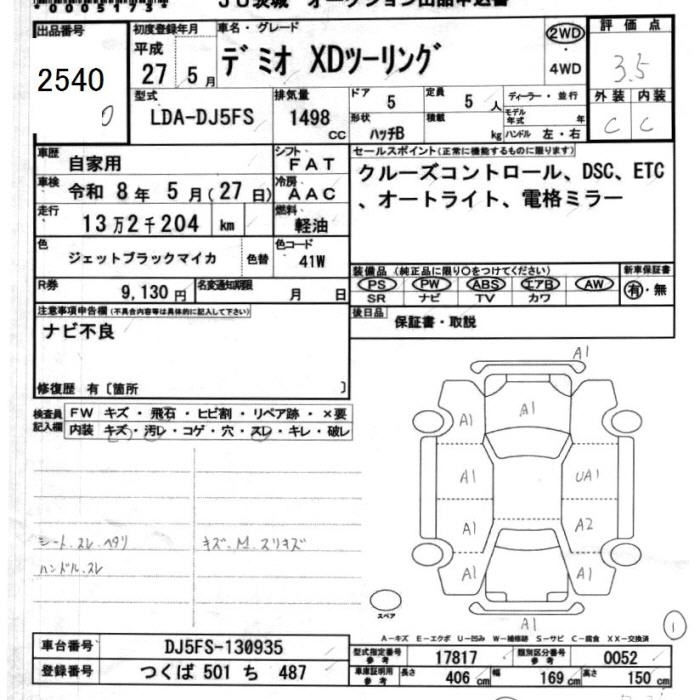 *0005173*
JU茨城 オークション出品申込書
出品番号
2540
初度登録年月
平成
27 5月
車名・グレード
デミオ XDツーリング
2WD
・
4WD
評価点
3.5
型式
LDA-DJ5FS
排気量
1498 CC
ドア 5
定員 5 人
形状 ハッチB
積載 kg
ディーラー・並行
モデル年式 年
ハンドル 左・右
外装 内装
C C
車歴
自家用
シフト
FAT
車検
令和 8年 5月(27日)
冷房
AAC
走行
13万2千204 km
燃料
軽油
セールスポイント(正常に機能するものに限ります)
クルーズコントロール、DSC、ETC
、オートライト、電格ミラー
色
ジェットブラックマイカ
色替
色コード
41W
装備品 (純正品に限り○をつけてください)
PS PW ABS エアB AW
SR ナビ TV カワ
新車保証書
有・無
R券
9,130円
名変通知期限
月 日
後日品
保証書・取説
注意事項申告欄(不具合内容等は具体的に記入して下さい)
ナビ不良
修復歴 有〔箇所 〕
検査員
記入欄
FW キズ・飛石・ヒビ割・リペア跡・×要
内装 キズ・汚レ・コゲ・穴・スレ・キレ・破レ
シート.スレ ヘタリ
ハンドル.スレ
キズ.M.スリキズ
A1
A1
A1
A1 UA1
A1 A2
A1 A1
A1
スペア
1
A−キズ E−エクボ U−凹み W−補修跡 S−サビ C−腐食 XX−交換済
車台番号
DJ5FS-130935
型式指定番号
参考
17817
類別区分番号
参考
0052
登録番号
つくば 501 ち 487
車庫証明用
参考
長さ 406 cm 幅 169 cm 高さ 150 cm